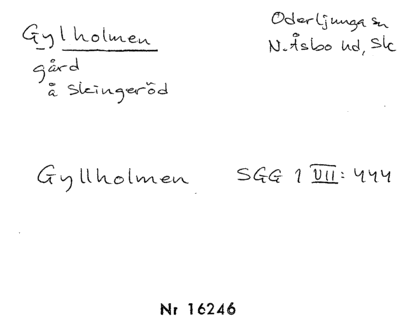 Gylholmen
Oderljunga sn
N. Åsbo hd, Sk
gård
å Skingeröd
Gyllholmen SGG 1 VII: 444
Nr 16246